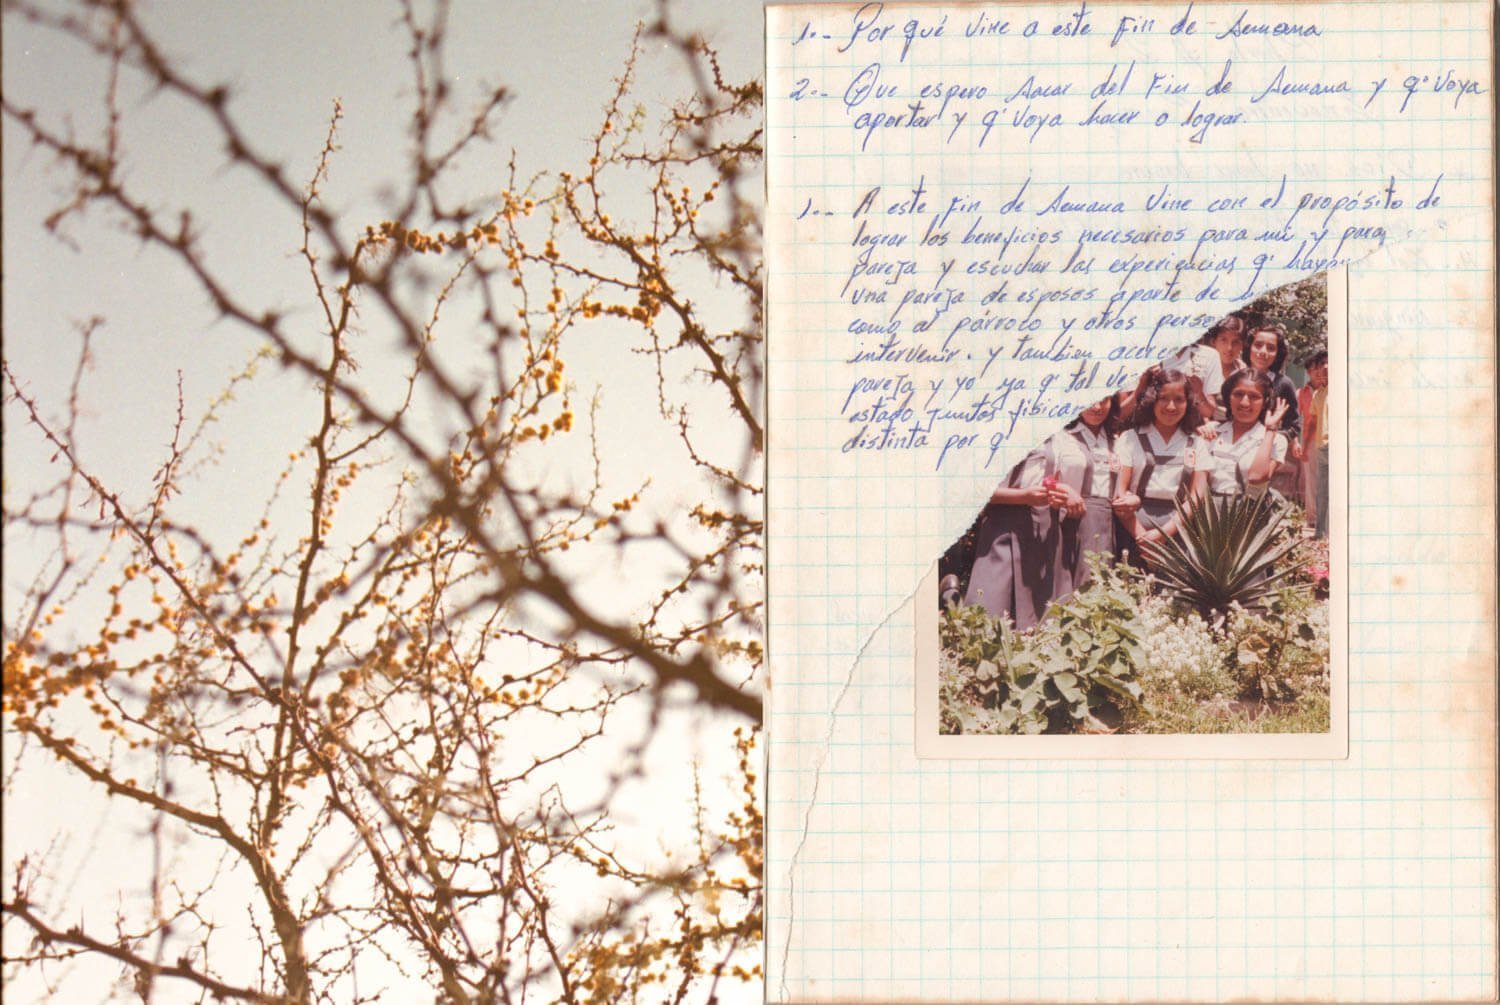 1.- Por qué vine a este fin de semana
2.- Que espero sacar del fin de semana y q' voya
aportar y q' voya hacer o lograr.
1.- A este fin de semana vine con el propósito de
lograr los beneficios necesarios para mi y para
pareja y escuchar las experiencias q' hayan
una pareja de esposos aparte de
como al párroco y otros perso
intervenir. y tambien acerca
pareja y yo ya q' tal ve
estado juntos fisicam
distinta por q'